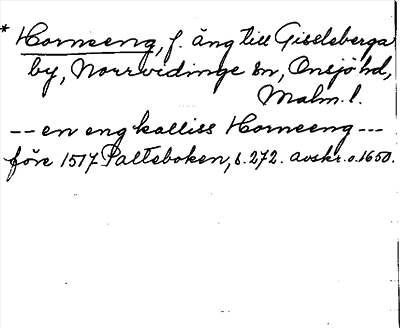 * Horneeng, f. äng till Giselsberga
by, Norrvidinge sn, Onsjö hd,
Malm. l.
-- en eng kalliss Horneeng ---
före 1517 Palteboken, s. 272. avskr. o. 1650.